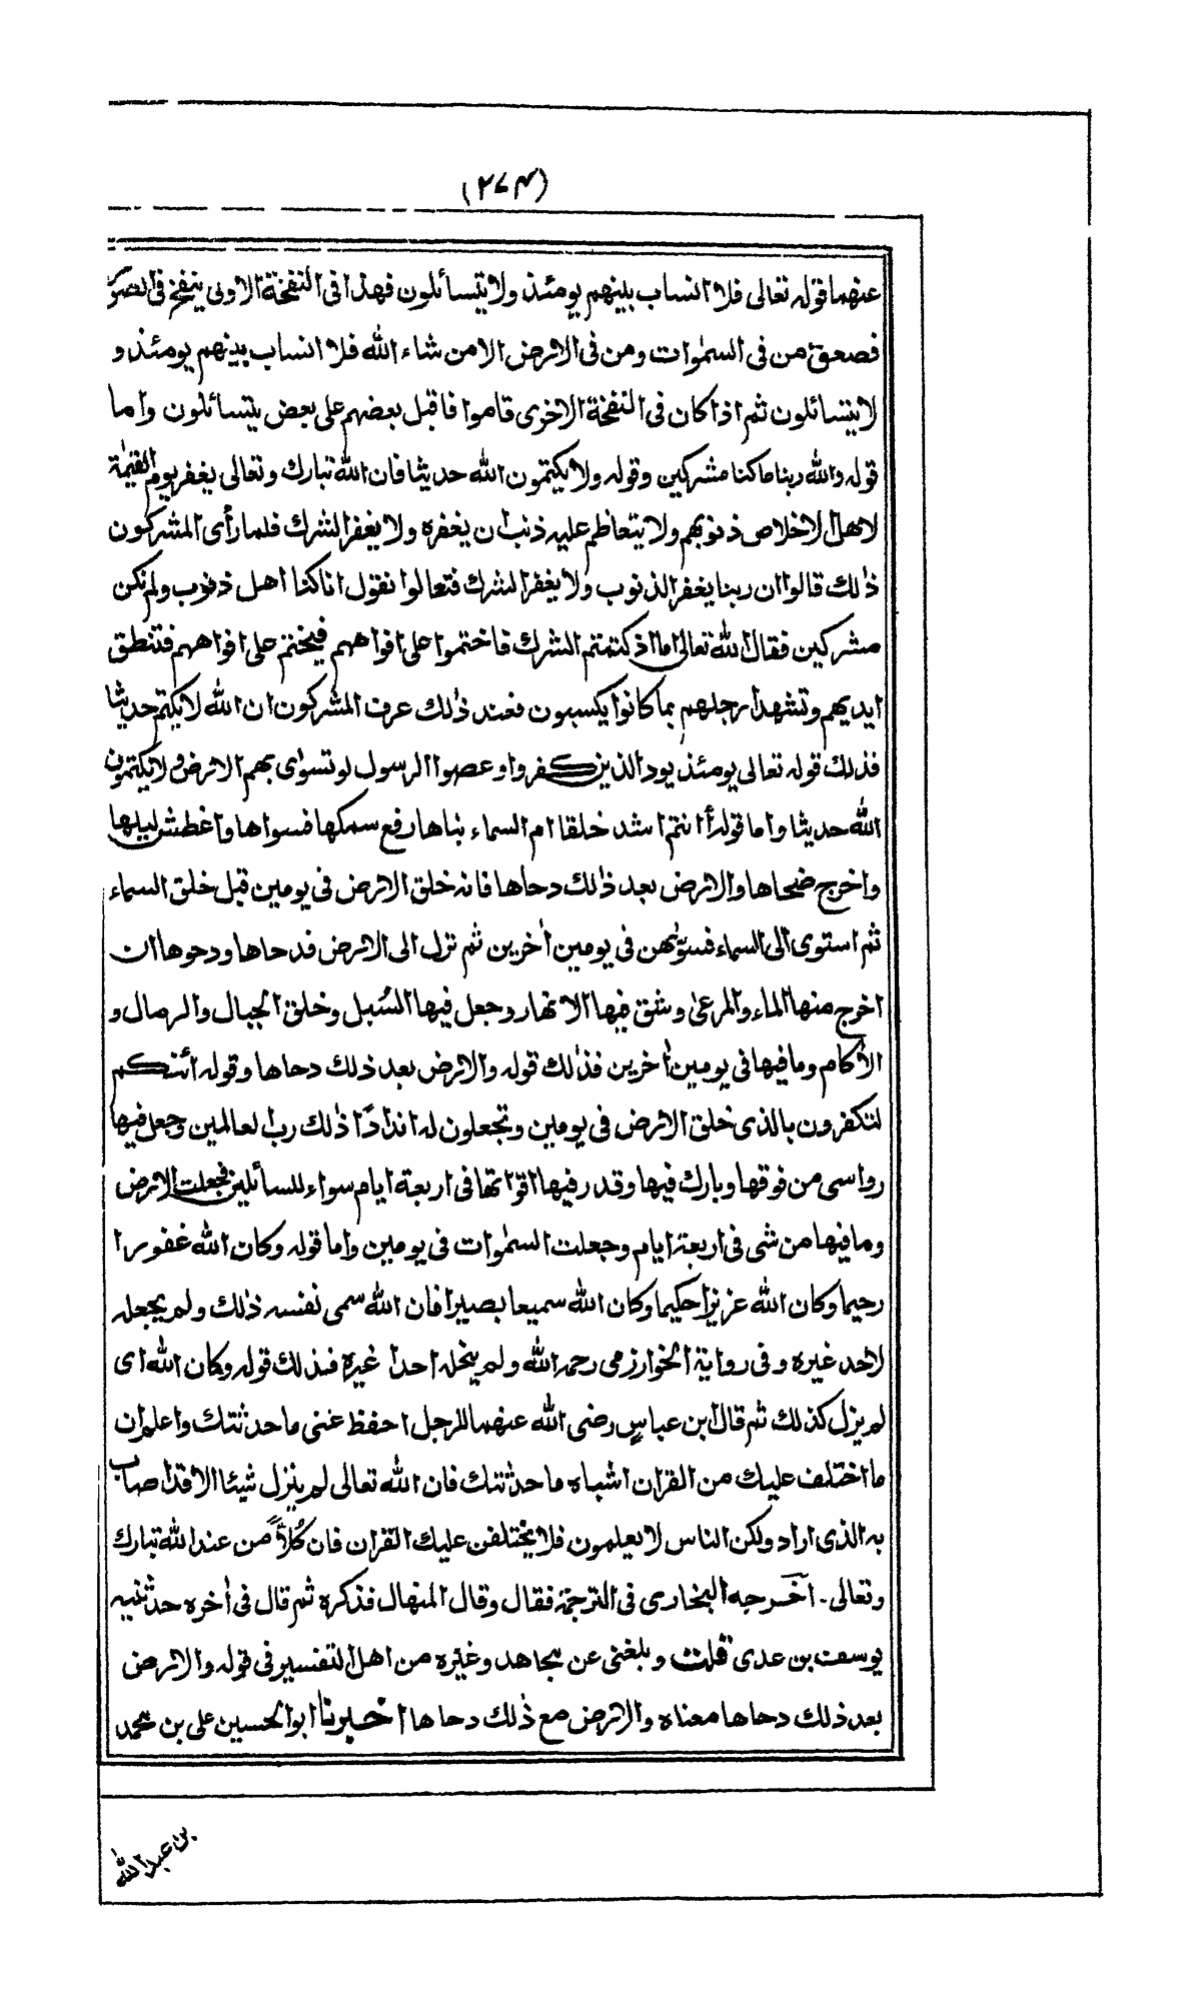 (٢٧٤)
عنهما قوله تعالى فلا انساب بينهم يومئذ ولا يتسائلون فهذا في النفخة الاولى ينفخ في الصور
فصعق من في السمٰوات ومن في الارض الا من شاء الله فلا انساب بينهم يومئذ و
لا يتسائلون ثم اذا كان في النفخة الاخرى قاموا فاقبل بعضهم على بعض يتسائلون واما
قوله والله ربنا ما كنا مشركين وقوله ولا يكتمون الله حديثا فان الله تبارك وتعالى يغفر يوم القيٰمة
لاهل الاخلاص ذنوبهم ولا يتعاظم عليه ذنب ان يغفره ولا يغفر الشرك فلما رأى المشركون
ذٰلك قالوا ان ربنا يغفر الذنوب ولا يغفر الشرك فتعالوا نقول انا كنا اهل ذنوب ولم نكن
مشركين فقال الله تعالى اما اذ كتمتم الشرك فاختموا على افواههم فيختم على افواههم فتنطق
ايديهم وتشهد ارجلهم بما كانوا يكسبون فعند ذٰلك عرف المشركون ان الله لا يكتم حديثا
فذٰلك قوله تعالى يومئذ يود الذين كفروا وعصوا الرسول لو تسوّى بهم الارض ولا يكتمون
الله حديثا واما قوله أانتم اشد خلقا ام السماء بناها رفع سمكها فسواها واغطش ليلها
واخرج ضحاها والارض بعد ذٰلك دحاها فانه خلق الارض في يومين قبل خلق السماء
ثم استوى الى السماء فسوّٰهن في يومين اٰخرين ثم نزل الى الارض فدحاها ودحوها ان
اخرج منها الماء والمرعىٰ وشق فيها الانهار وجعل فيها السُبل وخلق الجبال والرمال و
الأكام وما فيها في يومين أخرين فذٰلك قوله والارض بعد ذٰلك دحاها وقوله ائنكم
لتكفرون بالذى خلق الارض في يومين وتجعلون له اندادًا ذٰلك رب العالمين وجعل فيها
رواسى من فوقها وبارك فيها وقدر فيها اقواتها في اربعة ايام سواء للسائلين فجعلت الارض
وما فيها من شى في اربعة ايام وجعلت السمٰوات في يومين واما قوله وكان الله غفورا
رحيما وكان الله عزيزا حكيما وكان الله سميعا بصيرا فان الله سمى نفسه ذٰلك ولم يجعله
لاحد غيره وفى رواية الخوارزمى رحمه الله ولم ينحله احدا غيره فذلك قوله وكان الله اى
لم يزل كذلك ثم قال ابن عباس رضى الله عنهما للرجل احفظ عنى ما حدثتك واعلم ان
ما اختلف عليك من القران اشباه ما حدثتك فان الله تعالى لم ينزل شيئا الا قد اصاب
به الذى اراد ولكن الناس لا يعلمون فلا يختلفن عليك القران فان كُلاًّ من عند الله تبارك
وتعالى. اخرجه البخارى في الترجمة فقال وقال المنهال فذكره ثم قال في اٰخره حدثنيه
يوسف بن عدى قلت وبلغنى عن مجاهد وغيره من اهل التفسير في قوله والارض
بعد ذلك دحاها معناه والارض مع ذٰلك دحاها اخبرنا ابوالحسين على بن محمد
بن عبدالله